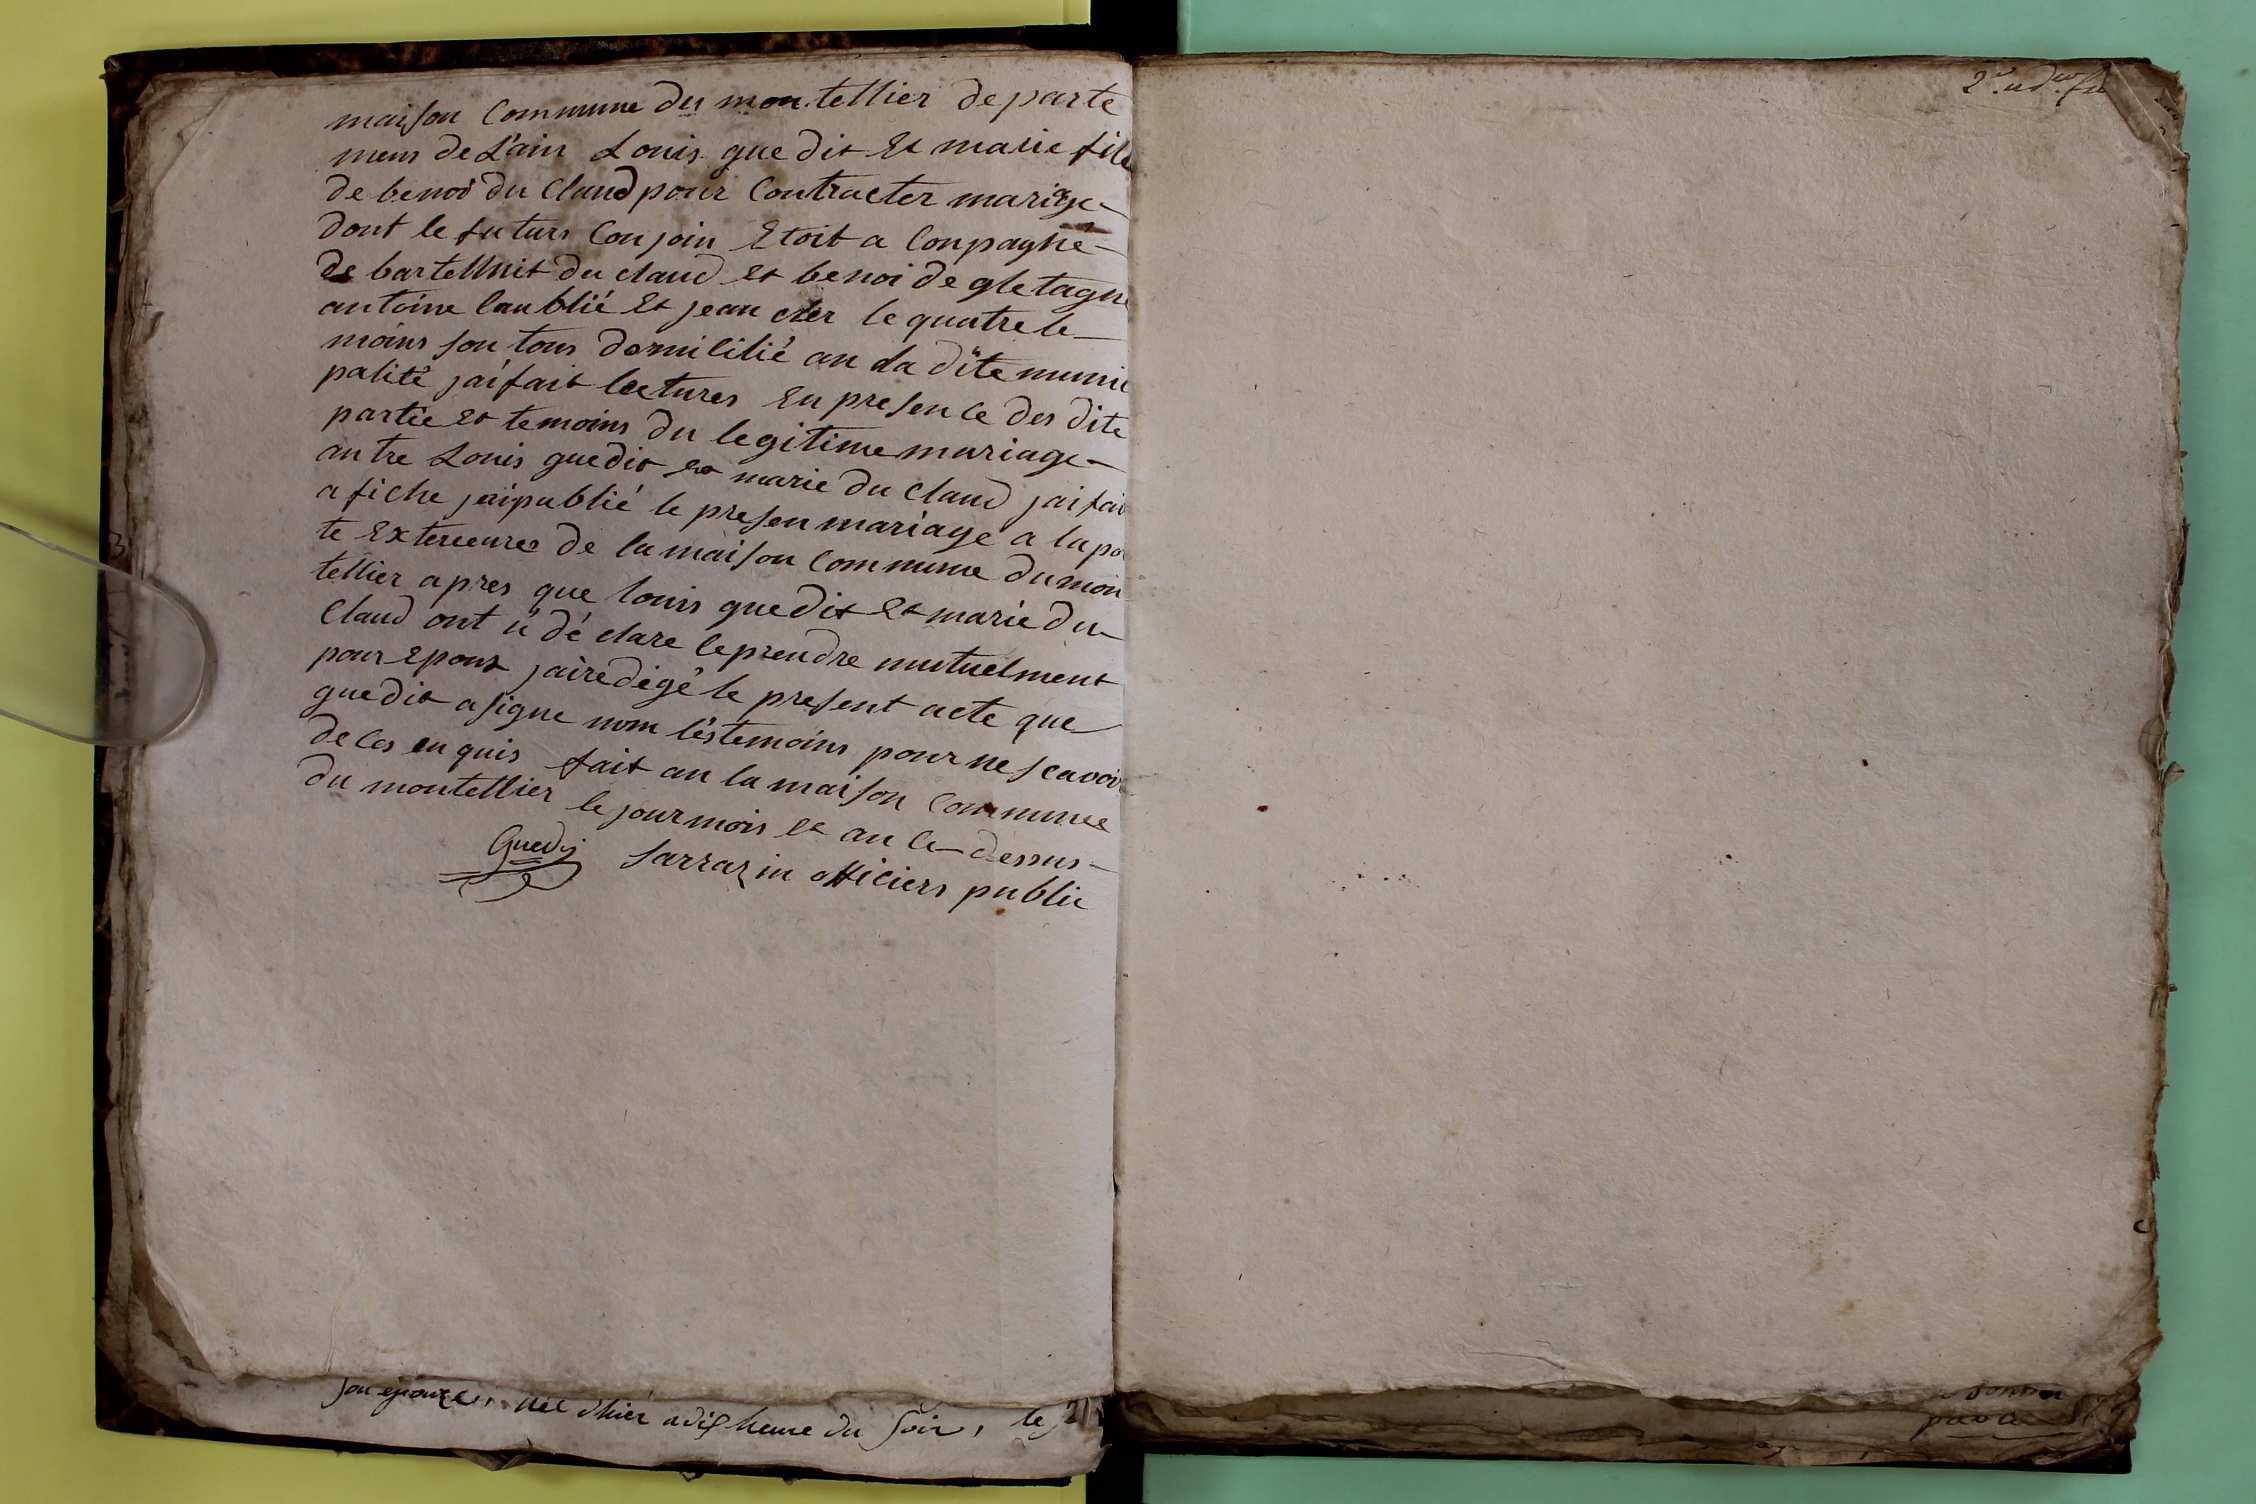 maison Commune du montellier departe
mens de L'ain Louis guedit Et marie file
de benoi du Claud pour Contracter mariage
dont le futurs Conjoin Etoit a Conpagne
de bartelmit du claud et benoi de gletagne
antoine Caublié Et jean cler le quatre te
moins son tous domilitié an la dite munici
palité jai fait lectures En presence des dite
partie et temoins du legitime mariage
antre Louis guedit et marie du Claud jai fait
afiche jai publié le presen mariage a la por
te Exterieures de la maison Commune du mon
tellier apres que louis guedit Et marie du
Claud ont û déclare ceprendre mutuelment
pour Epoux jai redigé le present acte que
guedit a signe nom les temoins pour ne scavoir
de ces enquis fait an la maison Communes
du montellier le jour mois et an ce dessus
Guedy Sarrazin officiers public
son epouze, née d'hier a dix heure du soir, le 21